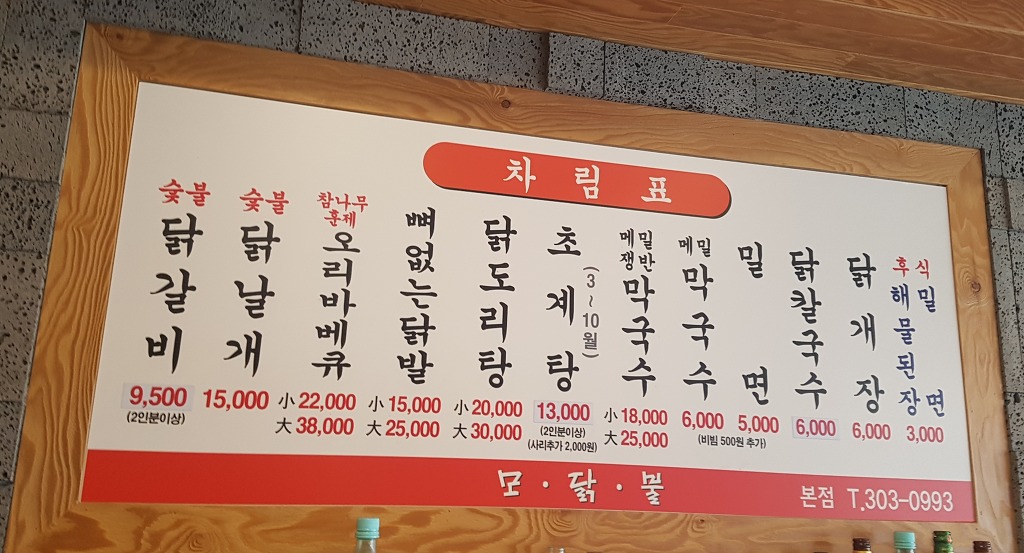 차림표
숯불
닭갈비
9,500
(2인분이상)
숯불
닭날개
15,000
참나무
훈제
오리바베큐
小 22,000
大 38,000
뼈없는닭발
小 15,000
大 25,000
닭도리탕
小 20,000
大 30,000
초계탕
(3~10월)
13,000
(2인분이상)
(사리추가 2,000원)
메밀
쟁반
막국수
小 18,000
大 25,000
메밀
막국수
6,000
밀면
5,000
(비빔 500원 추가)
닭칼국수
6,000
닭개장
6,000
후식
해물된장
밀면
3,000
모·닭·불
본점 T.303-0993